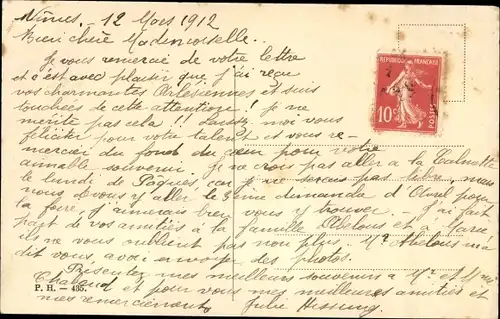 Nîmes, - 12 Mars 1912
Bien chère Mademoiselle..
Je vous remercie de votre lettre
et c'est avec plaisir que j'ai reçu
vos charmantes Arlésiennes et suis
touchée de cette attention! Je ne
mérite pas cela!! Laissez moi vous
féliciter pour votre talent et vous re-
mercier du fond du cœur pour votre
aimable souvenir. Je ne crois pas aller à la
le lundi de Pâques, car je ne serais pas libre, mais
nous devons y aller le 2ème dimanche d'Avril pour
la foire, j'aimerais bien vous y trouver - J'ai fait
part de vos amitiés à la famille Abelous et à
ils ne vous oublient pas non plus. Mr Abelous m'a
dit vous avoir envoyé des photos.
Présentez mes meilleurs souvenirs à Mr et Mme
Chabaud et pour vous mes meilleures amitiés et
mes remerciements
Julie
P. H. — 435.
REPUBLIQUE FRANÇAISE
10c
POSTES